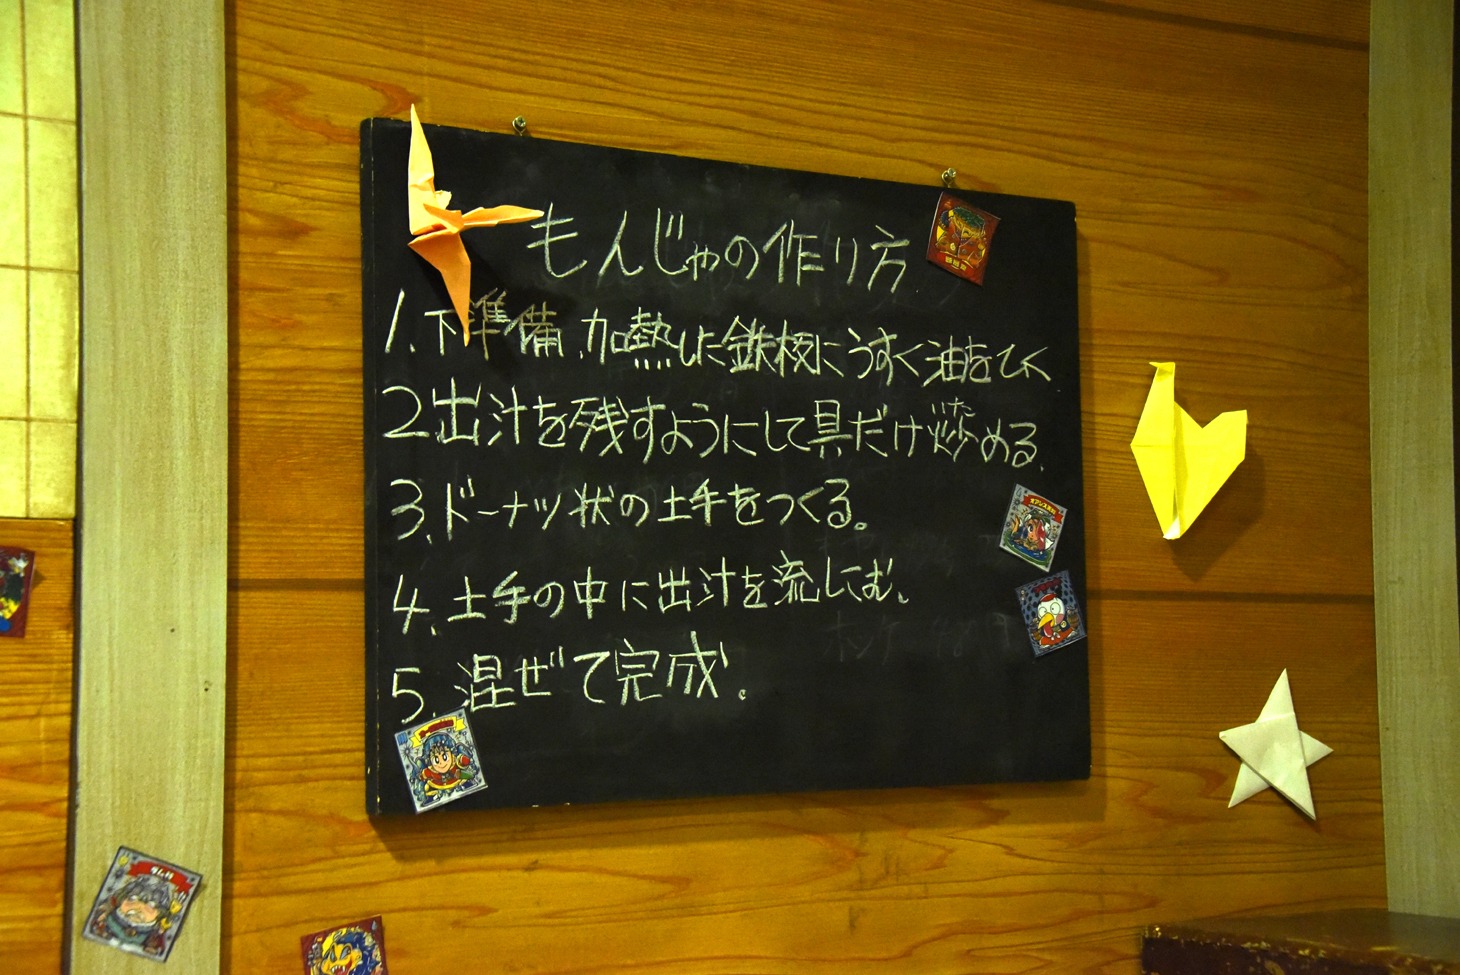 もんじゃの作り方
1.下準備、加熱した鉄板にうすく油をひく
2出汁を残すようにして具だけ炒める.
いた
3.ドーナツ状の土手をつくる。
4.土手の中に出汁を流しこむ、
5.混ぜて完成.